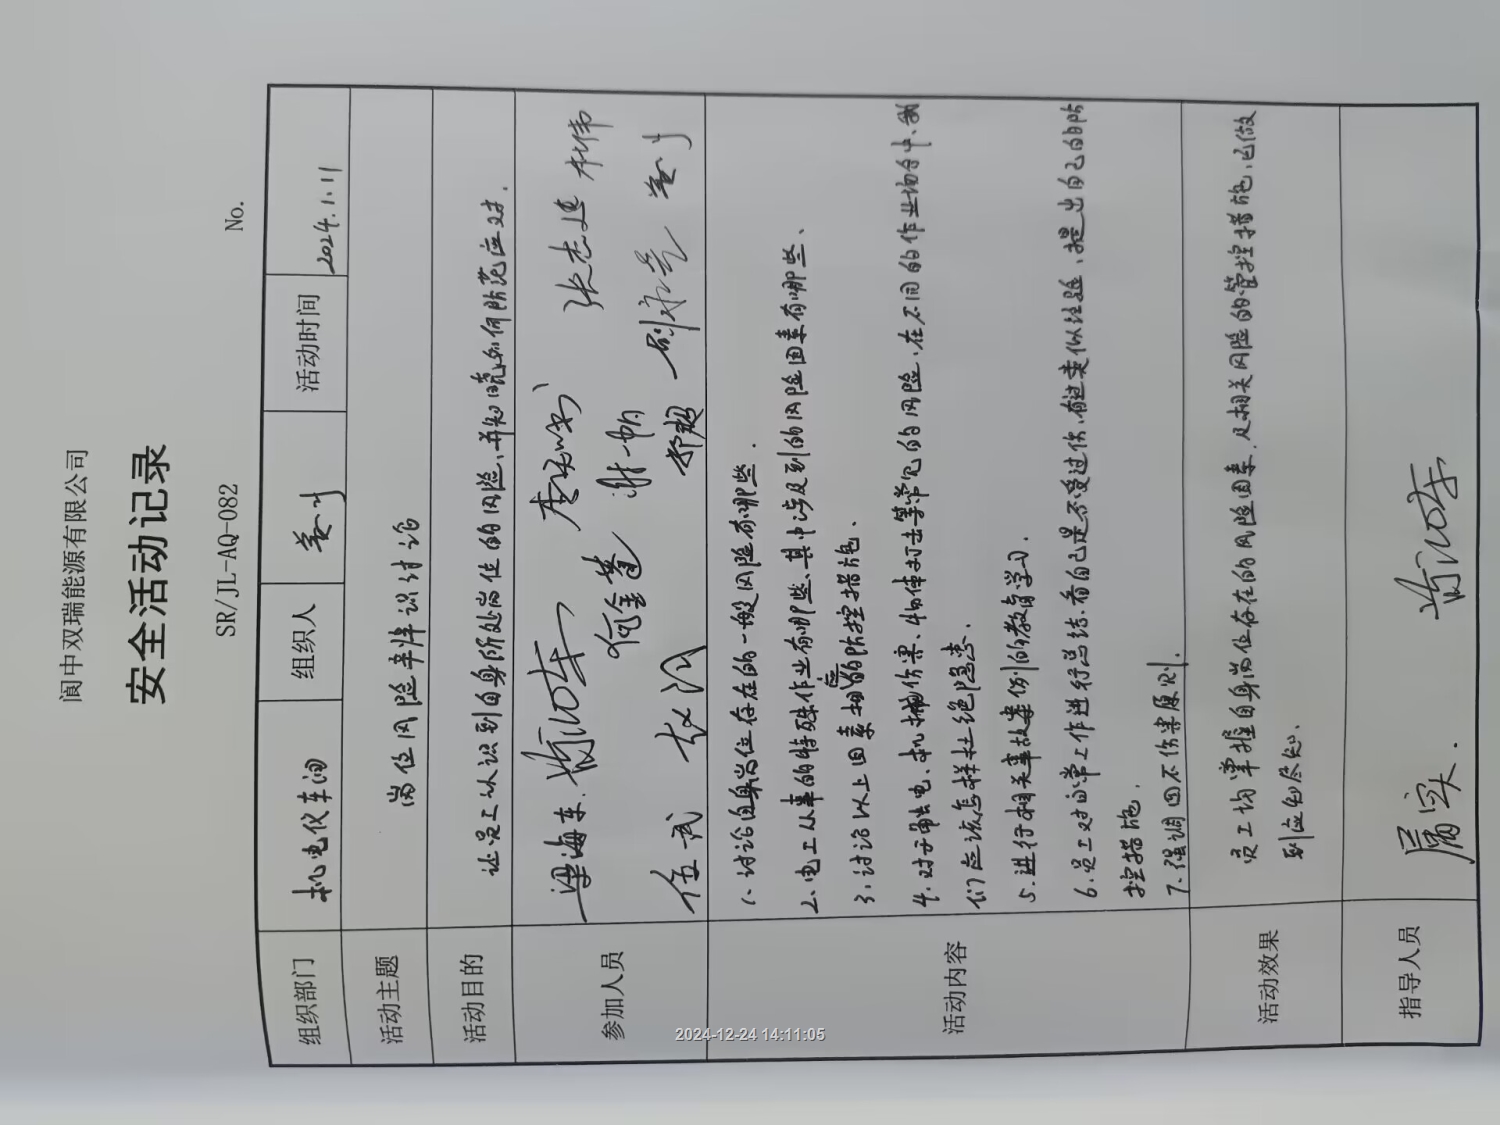 阆中双瑞能源有限公司
安全活动记录
SR/JL-AQ-082
No.
组织部门 机电仪车间 组织人 活动时间 2024.1.11
活动主题 岗位风险辛辨识讨论
活动目的 让员工认识到自身所处岗位的风险、并知晓如何防范应对.
参加人员 梁海东. 张志建 林伟
何金蓬 谢一帆
任武 赵 舒超
活动内容
1、讨论自身岗位存在的一般风险有哪些.
2、电工从事的特殊作业有哪些、其中涉及到的风险因素有哪些、
3、讨论以上因素相应的防控措施.
4、对于触电、机械伤害、物体打击等常见的风险、在不同的作业场合中、我
们应该怎样杜绝隐患.
5、进行相关事故案例的教育学习.
6、员工对日常工作进行总结、看自己是不受过伤、有过类似经验、提出自己的防
控措施.
7、强调四不伤害原则.
活动效果 员工均掌握自身岗位存在的风险因素、及相关风险的管控措施、已做
到应知尽知.
指导人员
2024-12-24 14:11:05